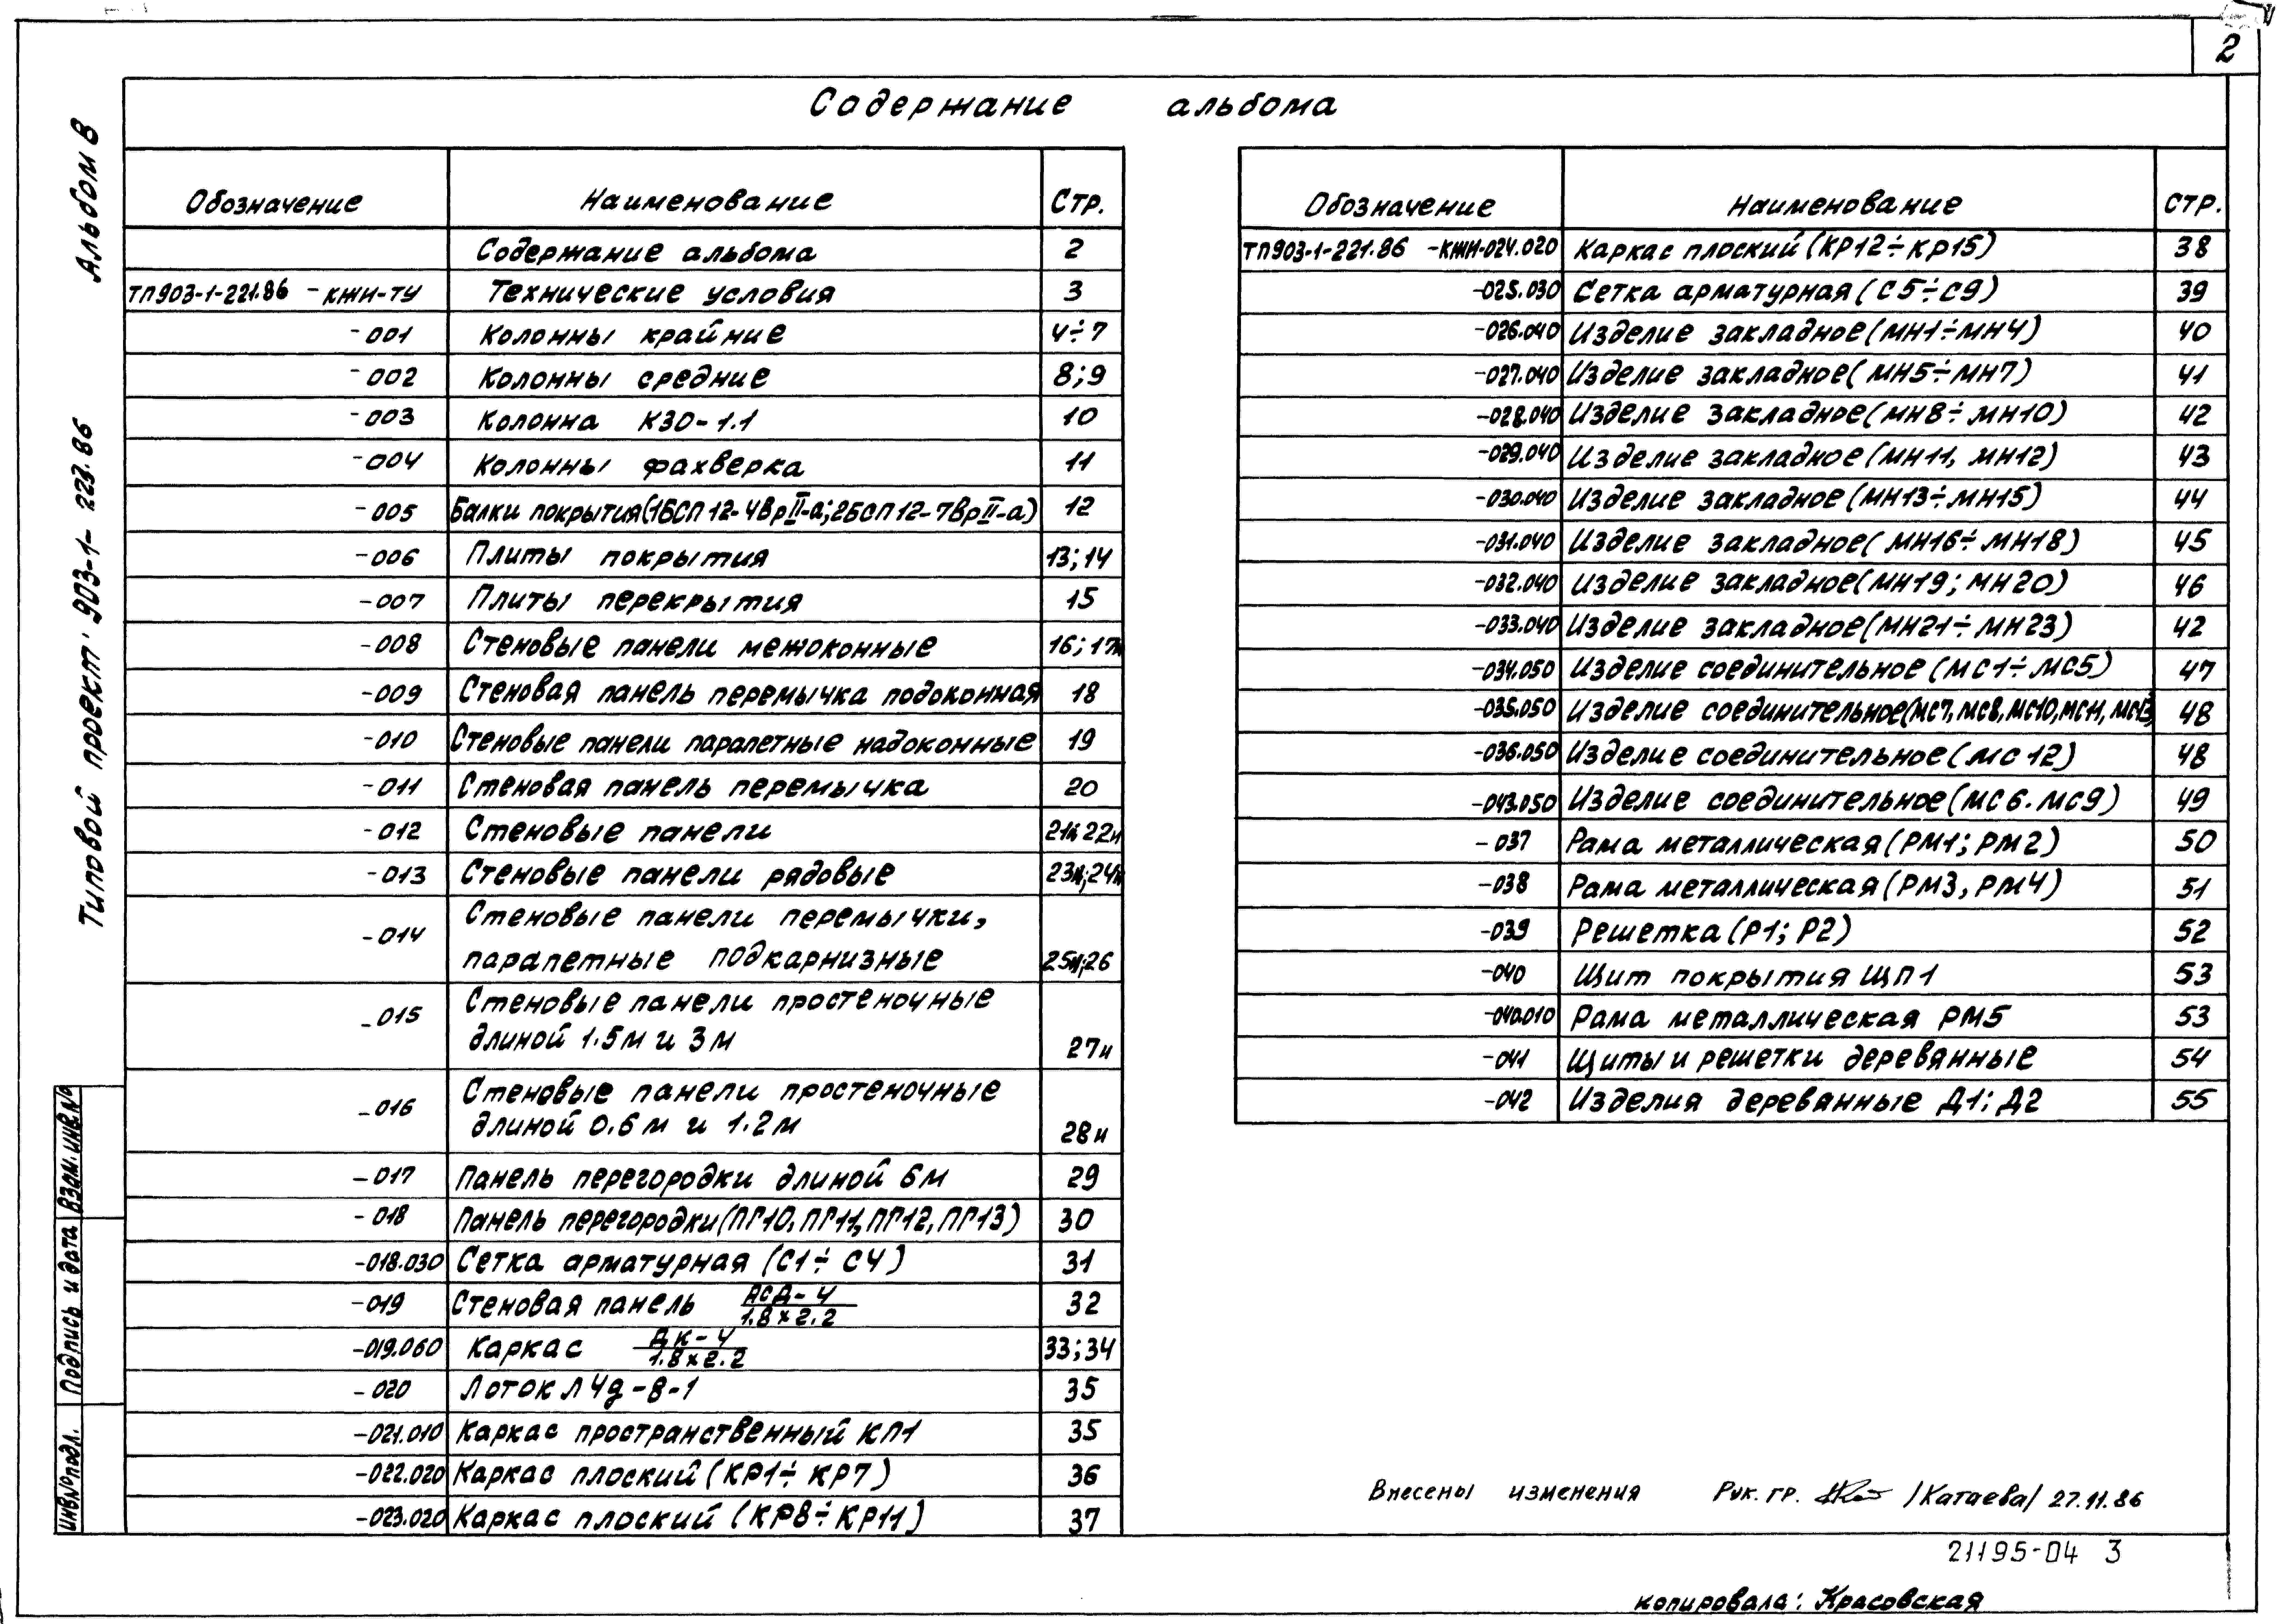 2
Содержание альбома
Альбом 8
Типовой проект 903-1-223.86
Обозначение Наименование Стр.
Содержание альбома 2
ТП903-1-221.86 -КЖИ-ТУ Технические условия 3
-001 Колонны крайние 4÷7
-002 Колонны средние 8;9
-003 Колонна К30-1.1 10
-004 Колонны фахверка 11
-005 Балки покрытия(1БСП12-4ВрII-а;2БСП12-7ВрII-а) 12
-006 Плиты покрытия 13;14
-007 Плиты перекрытия 15
-008 Стеновые панели межоконные 16;17и
-009 Стеновая панель перемычка подоконная 18
-010 Стеновые панели парапетные надоконные 19
-011 Стеновая панель перемычка 20
-012 Стеновые панели 21и;22и
-013 Стеновые панели рядовые 23и;24и
-014 Стеновые панели перемычки,
парапетные подкарнизные 25и;26
-015 Стеновые панели простеночные
длиной 1.5м и 3м 27и
-016 Стеновые панели простеночные
длиной 0.6м и 1.2м 28и
-017 Панель перегородки длиной 6м 29
-018 Панель перегородки(ПГ10,ПГ11,ПГ12,ПГ13) 30
-018.030 Сетка арматурная (С1÷С4) 31
-019 Стеновая панель АСД-4 32
1.8×2.2
-019.060 Каркас ДК-4 33;34
1.8×2.2
-020 Лоток Л4д-8-1 35
-021.010 Каркас пространственный КП1 35
-022.020 Каркас плоский (КР1÷КР7) 36
-023.020 Каркас плоский (КР8÷КР11) 37
Обозначение Наименование стр.
ТП903-1-221.86 -КЖИ-024.020 Каркас плоский (КР12÷КР15) 38
-025.030 Сетка арматурная (С5÷С9) 39
-026.040 Изделие закладное(МН1÷МН4) 40
-027.040 Изделие закладное(МН5÷МН7) 41
-028.040 Изделие закладное(МН8÷МН10) 42
-029.040 Изделие закладное(МН11, МН12) 43
-030.040 Изделие закладное (МН13÷МН15) 44
-031.040 Изделие закладное(МН16÷МН18) 45
-032.040 Изделие закладное(МН19; МН20) 46
-033.040 Изделие закладное(МН21÷МН23) 42
-034.050 Изделие соединительное (МС1÷МС5) 47
-035.050 Изделие соединительное(МС7,МС8,МС10,МС11,МС13) 48
-036.050 Изделие соединительное(МС12) 48
-043.050 Изделие соединительное(МС6.МС9) 49
-037 Рама металлическая(РМ1; РМ2) 50
-038 Рама металлическая(РМ3, РМ4) 51
-039 Решетка(Р1; Р2) 52
-040 Щит покрытия ЩП1 53
-040.010 Рама металлическая РМ5 53
-041 Щиты и решетки деревянные 54
-042 Изделия дереванные Д1; Д2 55
Взам.инв.№
Подпись и дата
Инв.№подл.
Внесены изменения Рук. гр. /Катаева/ 27.11.86
21195-04 3
копировала: Красовская